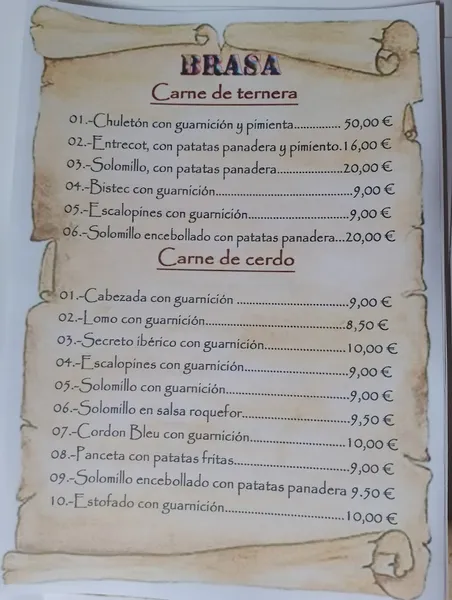 BRASA
Carne de ternera
01.-Chuletón con guarnición y pimienta.............. 50,00 €
02.-Entrecot, con patatas panadera y pimiento.16,00 €
03.-Solomillo, con patatas panadera....................20,00 €
04.-Bistec con guarnición..........................................9,00 €
05.-Escalopines con guarnición...............................9,00 €
06.-Solomillo encebollado con patatas panadera...20,00 €
Carne de cerdo
01.-Cabezada con guarnición .................................9,00 €
02.-Lomo con guarnición..........................................8,50 €
03.-Secreto ibérico con guarnición........................10,00 €
04.-Escalopines con guarnición...............................9,00 €
05.-Solomillo con guarnición....................................9,00 €
06.-Solomillo en salsa roquefor................................9,50 €
07.-Cordon Bleu con guarnición............................10,00 €
08.-Panceta con patatas fritas.................................9,00 €
09.-Solomillo encebollado con patatas panadera 9.50 €
10.-Estofado con guarnición...................................10,00 €